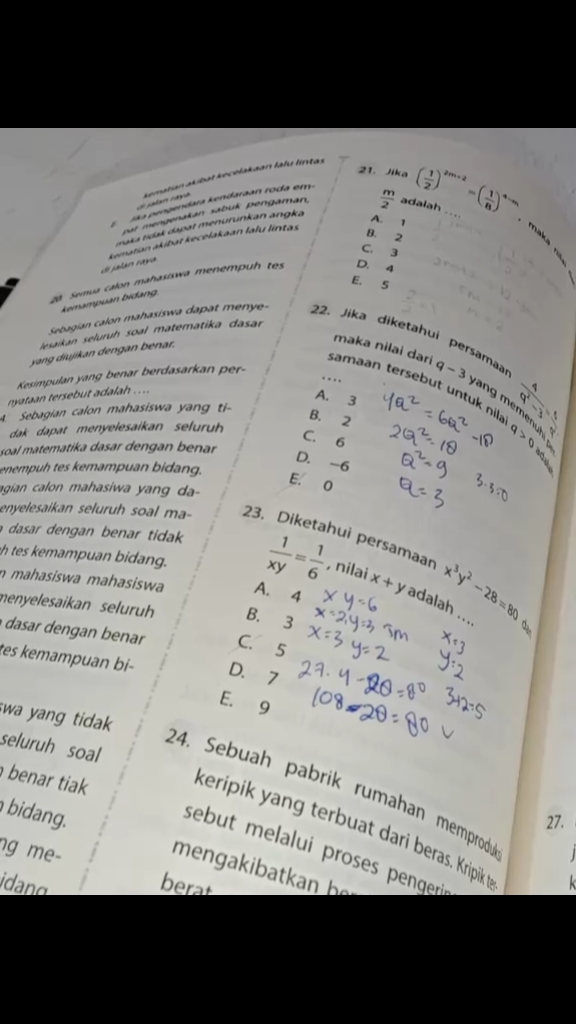 kematian akibat kecelakaan lalu lintas
di jalan raya.
E. Jika pengendara kendaraan roda em-
pat mengenakan sabuk pengaman,
maka tidak dapat menurunkan angka
kematian akibat kecelakaan lalu lintas
di jalan raya.
20. Semua calon mahasiswa menempuh tes
kemampuan bidang.
Sebagian calon mahasiswa dapat menye-
lesaikan seluruh soal matematika dasar
yang diujikan dengan benar.
Kesimpulan yang benar berdasarkan per-
nyataan tersebut adalah ....
A. Sebagian calon mahasiswa yang ti-
dak dapat menyelesaikan seluruh
soal matematika dasar dengan benar
menempuh tes kemampuan bidang.
agian calon mahasiwa yang da-
enyelesaikan seluruh soal ma-
dasar dengan benar tidak
h tes kemampuan bidang.
n mahasiswa mahasiswa
menyelesaikan seluruh
dasar dengan benar
tes kemampuan bi-
swa yang tidak
seluruh soal
benar tiak
bidang.
ng me-
idang
21. Jika (1/2)^2m+2 = (1/8)^4-m, maka nilai
m/2 adalah ....
A. 1
B. 2
C. 3
D. 4
E. 5
22. Jika diketahui persamaan 4/q²-3 = 6/q²
maka nilai dari q – 3 yang memenuhi per-
samaan tersebut untuk nilai q > 0 adalah
....
A. 3
B. 2
C. 6
D. –6
E. 0
4Q² = 6Q² - 18
2Q² = 18
Q² = 9
Q = 3
3-3=0
23. Diketahui persamaan x³y² – 28 = 80 dan
1/xy = 1/6, nilai x + y adalah ....
A. 4
B. 3
C. 5
D. 7
E. 9
xy=6
x=2, y=3 Tm
x=3 y=2
27.4-28=80
108-28=80 ✓
x=3
y=2
3+2=5
24. Sebuah pabrik rumahan memproduksi
keripik yang terbuat dari beras. Kripik ter-
sebut melalui proses pengerin
mengakibatkan
berat
27.
j
k